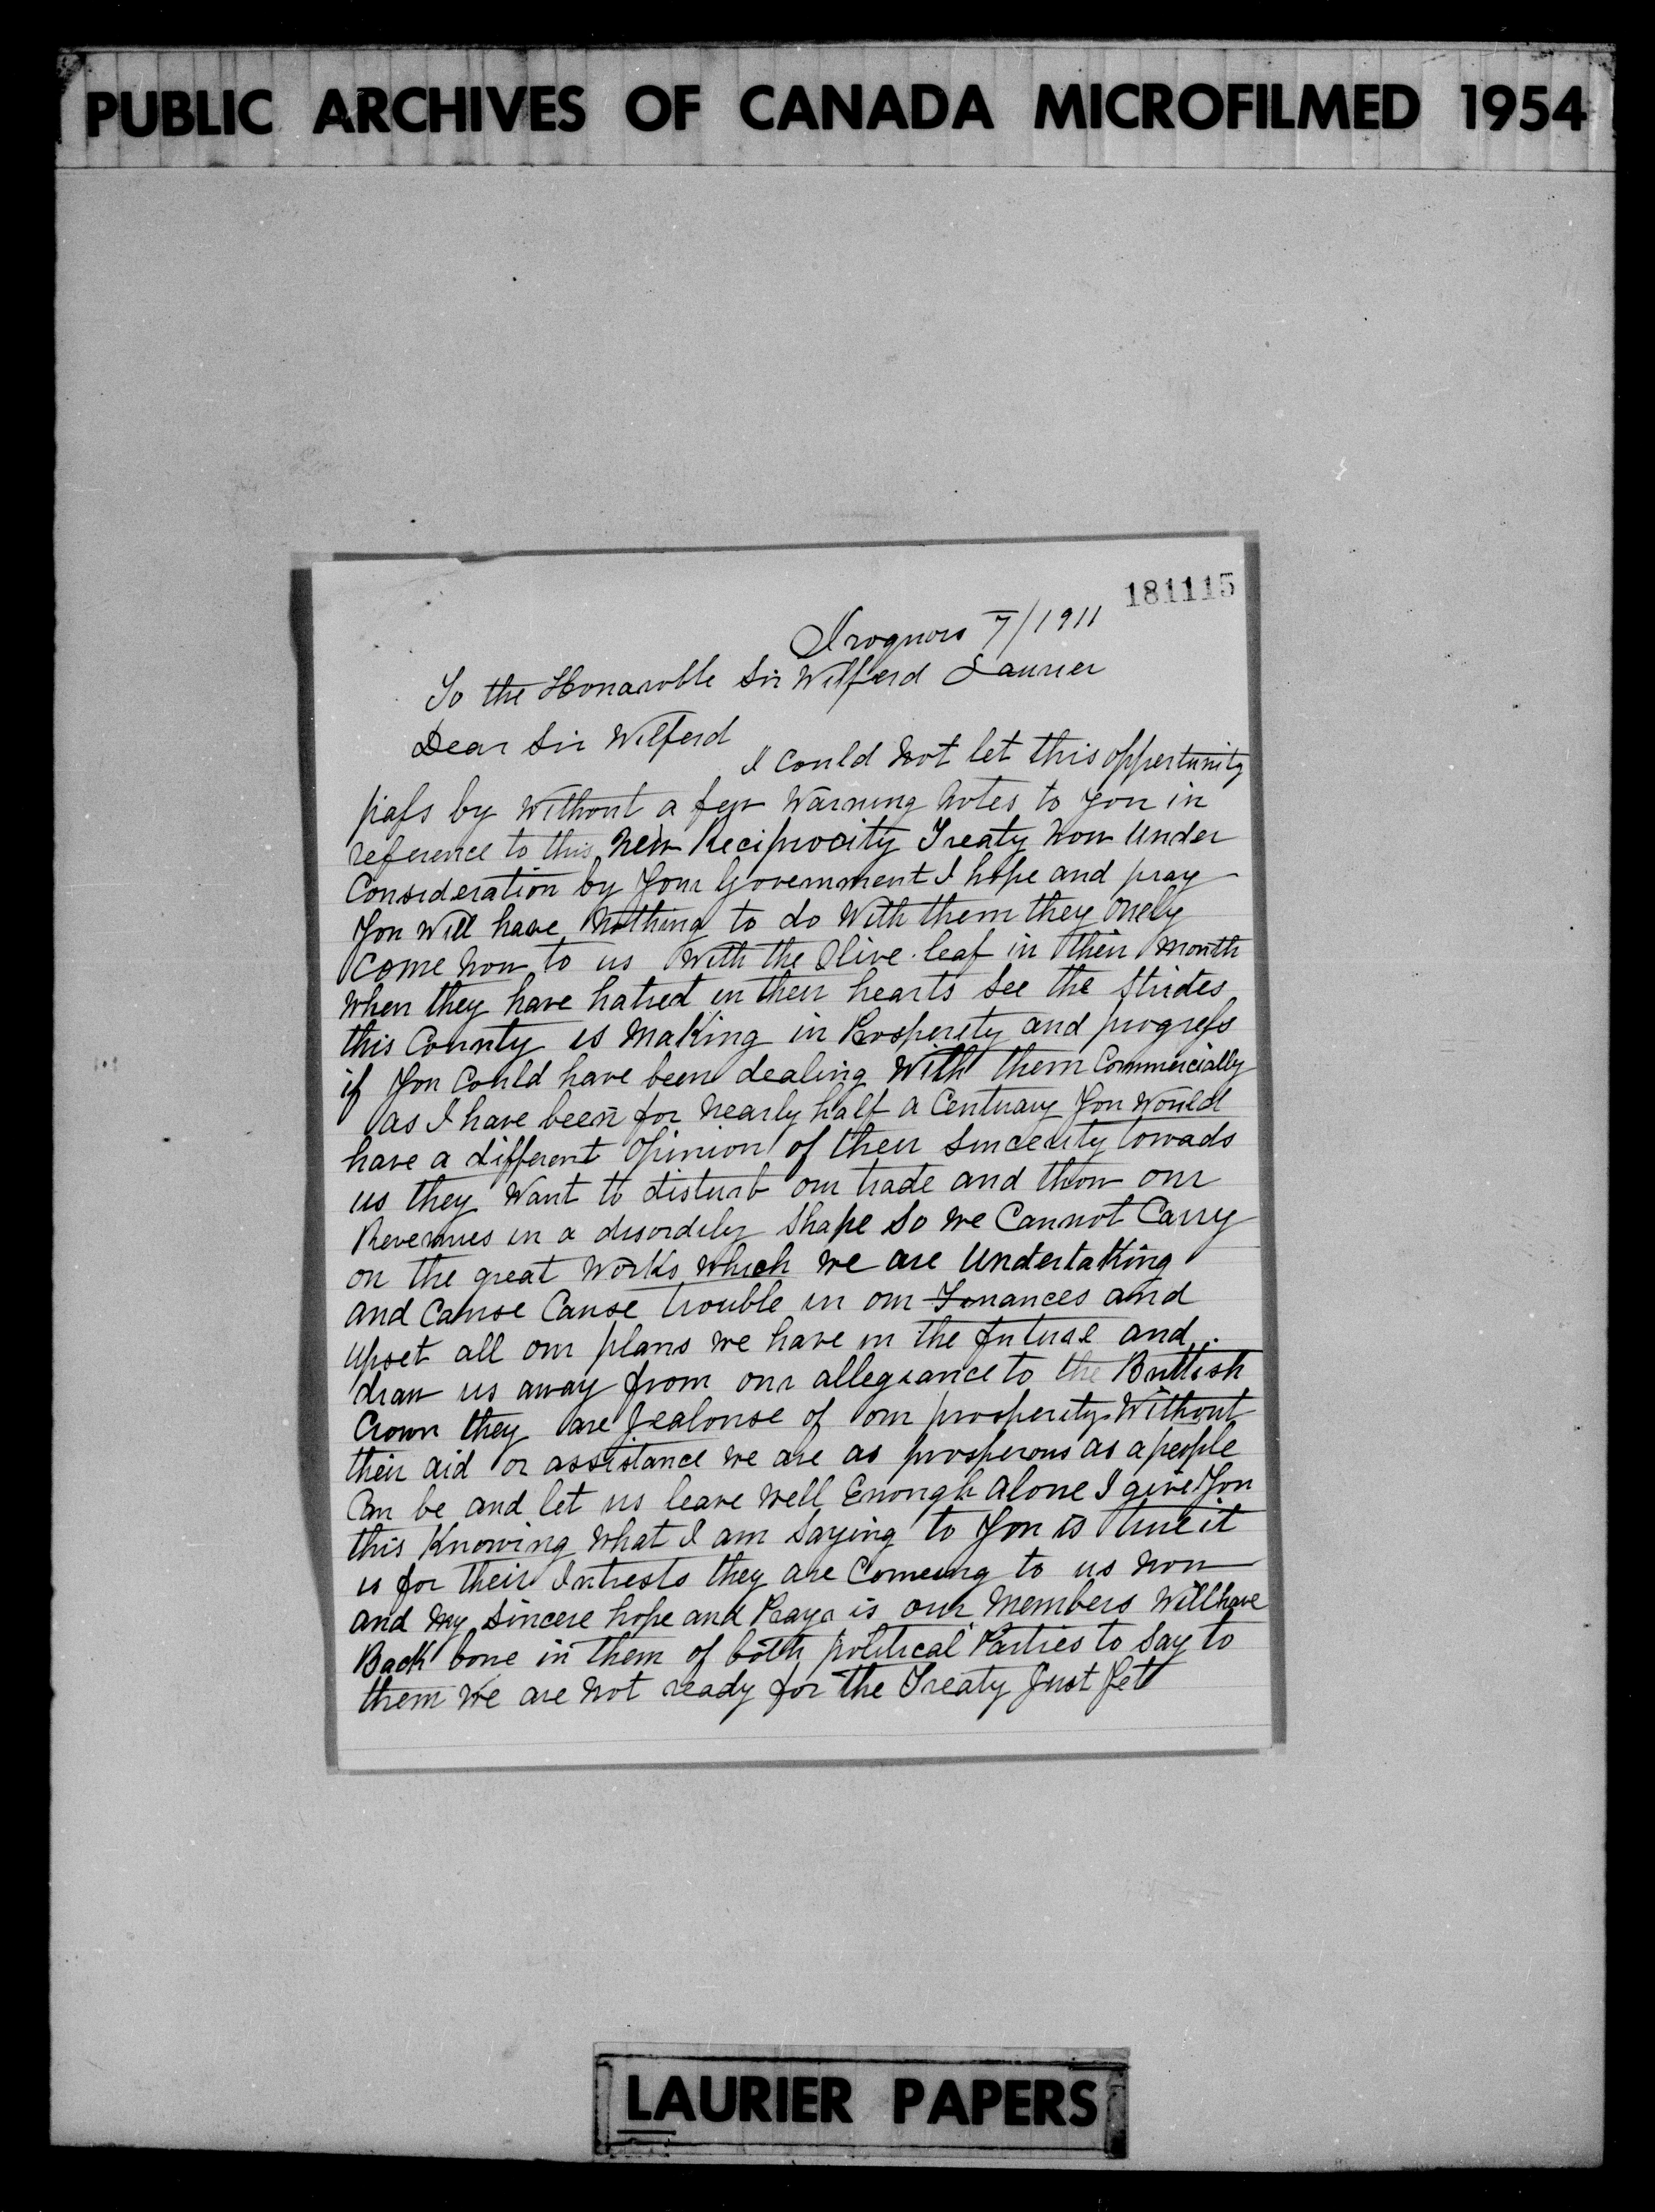 PUBLIC ARCHIVES OF CANADA MICROFILMED 1954
181115
Iroquois 7/1911
To the Honarable Sir Wilferd Laurier
Dear Sir Wilferd
I Could Not let this oppertunity
pass by Without a few Warning Notes to you in
reference to this New Reciprocity Treaty Now Under
Consideration by Your Government I hope and pray
You Will have Nothing to do With them they Onely
Come Now to us With the Olive leaf in their Mouth
When they have hatred in their hearts See the Strides
this County is Making in Prosperety and progress
if You Could have been dealing With them Commercially
as I have been for Nearly half a Centuary You Would
have a different Opinion of their Sincerity towads
us they Want to disturb our trade and thow our
Revenues in a disordily Shape So We Cannot Carry
on the great Works Which We are Undertaking
and Cause Cause trouble in our Finances and
Upset all our plans We have in the future and
draw us away from our allegiance to the Brittish
Crown they are Jealouse of our prosperity Without
their aid or assistance We are as prosperous as a people
Can be and let us leave Well Enough Alone I give You
this Knowing What I am Saying to You is true it
is for their Intrests they are Comeing to us Now
and My Sincere hope and Praya is our Members Will have
Back bone in them of both political Parties to Say to
them We are Not ready for the Treaty Just Yet
LAURIER PAPERS